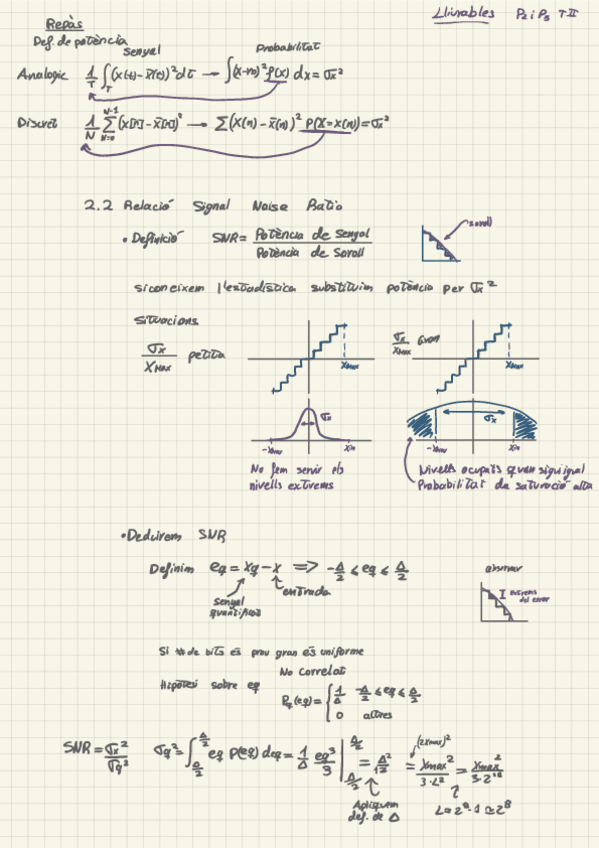 Llivrables P2 i P3 TII
Repàs
Def. de potència
senyal
Probabilitat
Analogic 1/T ∫_T (x(t)-x̄(t))² dt → ∫(x-m)² f(x) dx = σx²
Discret 1/N Σ_{n=0}^{N-1} (x[n]-x̄[n])² → Σ(x(n)-x̄(n))² P(X=x(n)) = σx²
2.2 Relació Signal Noise Ratio
• Definició SNR = Potència de Senyal / Potència de Soroll
soroll
si coneixem l'estadística substituim potència per σx²
Situacions
σx / XMAX petita
σx / XMAX Gran
XMAX
XMAX
σx
σx
-XMAX
-XMAX
No fem servir els
nivells extrems
Nivells ocupats quan sigui igual
Probabilitat de saturació alta
• Deduirem SNR
Definim eq = xq - x => -Δ/2 ≤ eq ≤ Δ/2
senyal
quantificat
entrada
extrems
del error
Si # de bits és prou gran és uniforme
No correlat
Hipòtesi sobre eq
Pq(eq) = { 1/Δ -Δ/2 ≤ eq ≤ Δ/2
0 altres
SNR = σx²/σq² σq² = ∫ eq P(eq) deq = 1/Δ eq³/3 | = Δ²/12 = Xmax²/3·L² = Xmax²/3·2^{2B}
(2Xmax)²
Apliquem
def. de Δ
L = 2^B - 1 ≃ 2^B